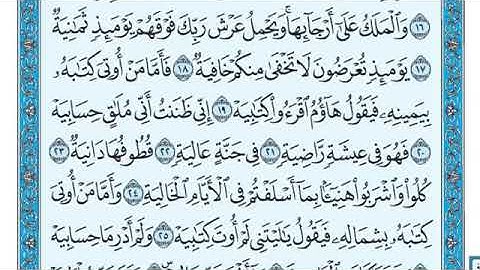 ﴿١٦﴾ وَٱلْمَلَكُ عَلَىٰٓ أَرْجَآئِهَا ۚ وَيَحْمِلُ عَرْشَ رَبِّكَ فَوْقَهُمْ يَوْمَئِذٍ ثَمَٰنِيَةٌ
﴿١٧﴾ يَوْمَئِذٍ تُعْرَضُونَ لَا تَخْفَىٰ مِنكُمْ خَافِيَةٌ ﴿١٨﴾ فَأَمَّا مَنْ أُوتِىَ كِتَٰبَهُۥ
بِيَمِينِهِۦ فَيَقُولُ هَآؤُمُ ٱقْرَءُوا۟ كِتَٰبِيَهْ ﴿١٩﴾ إِنِّى ظَنَنتُ أَنِّى مُلَٰقٍ حِسَابِيَهْ
﴿٢٠﴾ فَهُوَ فِى عِيشَةٍ رَّاضِيَةٍ ﴿٢١﴾ فِى جَنَّةٍ عَالِيَةٍ ﴿٢٢﴾ قُطُوفُهَا دَانِيَةٌ ﴿٢٣﴾
كُلُوا۟ وَٱشْرَبُوا۟ هَنِيٓـًٔۢا بِمَآ أَسْلَفْتُمْ فِى ٱلْأَيَّامِ ٱلْخَالِيَةِ ﴿٢٤﴾ وَأَمَّا مَنْ أُوتِىَ
كِتَٰبَهُۥ بِشِمَالِهِۦ فَيَقُولُ يَٰلَيْتَنِى لَمْ أُوتَ كِتَٰبِيَهْ ﴿٢٥﴾ وَلَمْ أَدْرِ مَا حِسَابِيَهْ